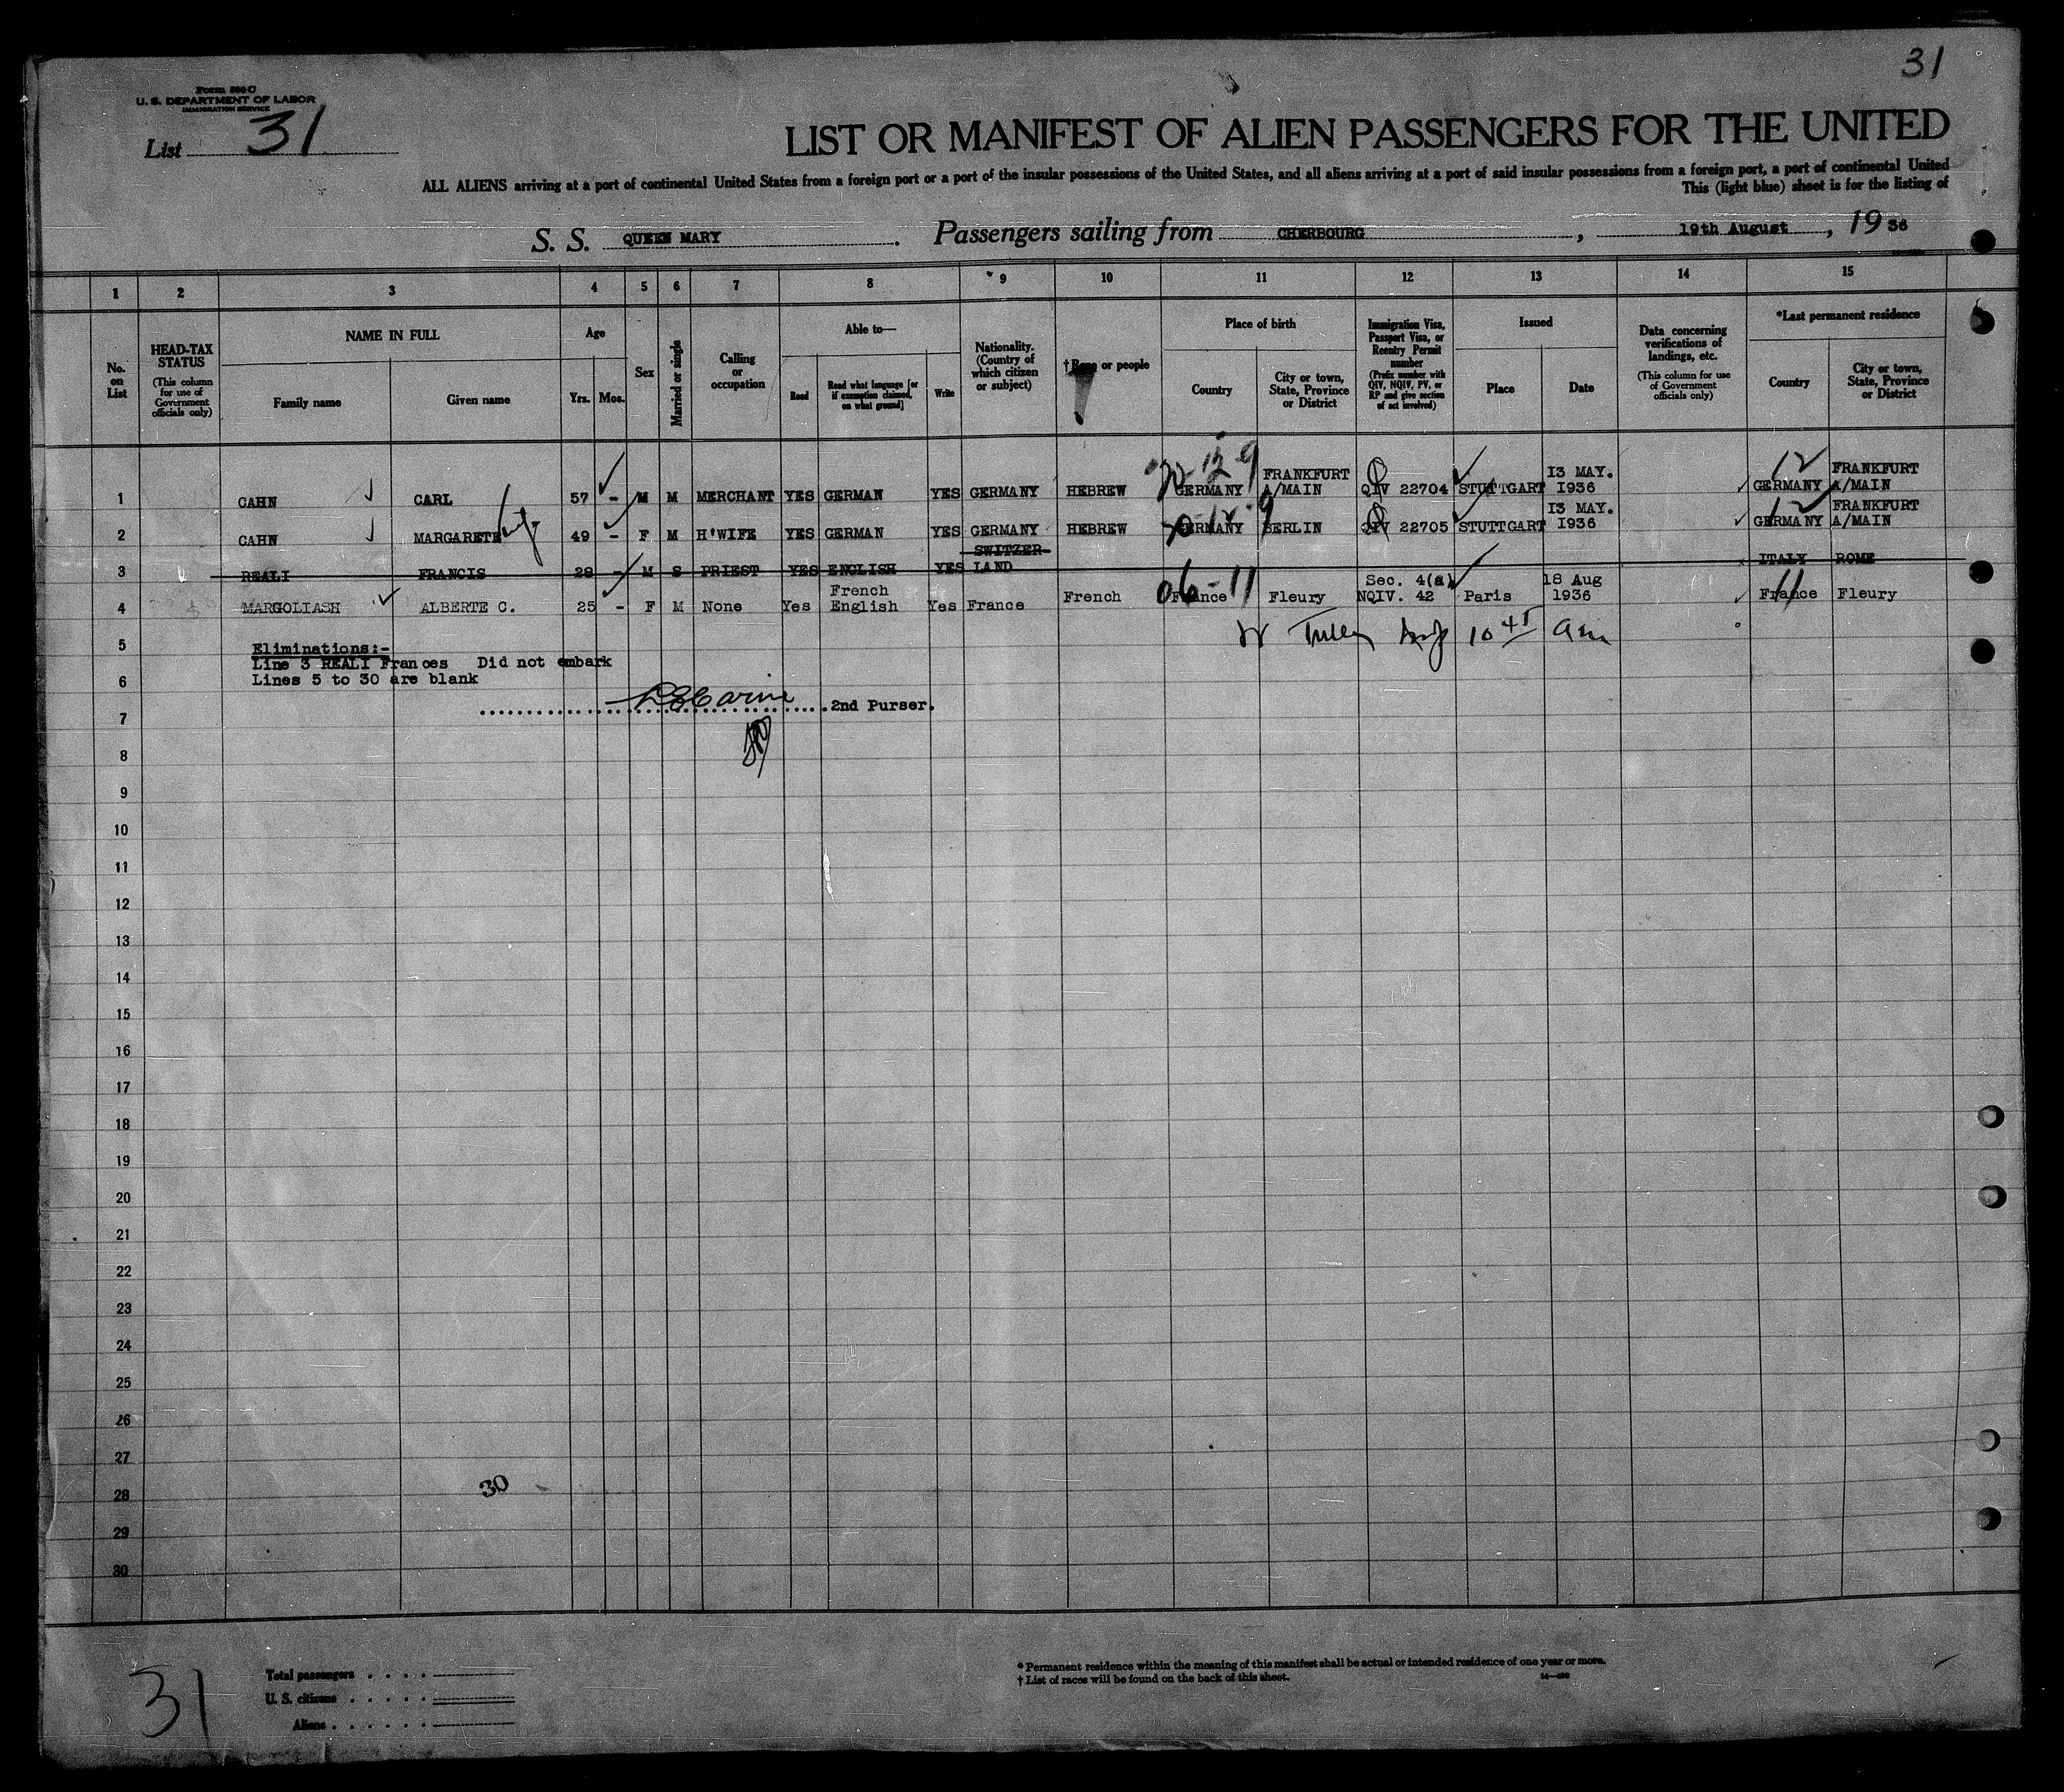 31
Form 500 C
U. S. DEPARTMENT OF LABOR
IMMIGRATION SERVICE
List 31
LIST OR MANIFEST OF ALIEN PASSENGERS FOR THE UNITED
ALL ALIENS arriving at a port of continental United States from a foreign port or a port of the insular possessions of the United States, and all aliens arriving at a port of said insular possessions from a foreign port, a port of continental United
This (light blue) sheet is for the listing of
S. S. QUEEN MARY. Passengers sailing from CHERBOURG, 19th August, 1936
1 2 3 4 5 6 7 8 9 10 11 12 13 14 15
No. on List
HEAD-TAX STATUS (This column for use of Government officials only)
NAME IN FULL
Family name
Given name
Age
Yrs. Mos.
Sex
Married or single
Calling or occupation
Able to—
Read
Read what language [or if exemption claimed, on what ground]
Write
Nationality. (Country of which citizen or subject)
† Race or people
Place of birth
Country
City or town, State, Province or District
Immigration Visa, Passport Visa, or Reentry Permit number (Prefix number with QIV, NQIV, PV, or RP and give section of act involved)
Issued
Place
Date
Data concerning verifications of landings, etc. (This column for use of Government officials only)
*Last permanent residence
Country
City or town, State, Province or District
1 CAHN CARL 57 - M M MERCHANT YES GERMAN YES GERMANY HEBREW GERMANY FRANKFURT A/MAIN QIV 22704 STUTTGART 13 MAY. 1936 12 GERMANY FRANKFURT A/MAIN
2 CAHN MARGARETE 49 - F M H'WIFE YES GERMAN YES GERMANY HEBREW GERMANY BERLIN QIV 22705 STUTTGART 13 MAY. 1936 12 GERMANY FRANKFURT A/MAIN
3 REALI FRANCIS 28 - M S PRIEST YES ENGLISH YES SWITZER-LAND ITALY ROME
4 MARGOLIASH ALBERTE C. 25 - F M None Yes French English Yes France French 06-11 France Fleury Sec. 4(a) NQIV. 42 Paris 18 Aug 1936 11 France Fleury
10 45 am
5 Eliminations:-
Line 3 REALI Frances Did not embark
6 Lines 5 to 30 are blank
7 2nd Purser.
8
9
10
11
12
13
14
15
16
17
18
19
20
21
22
23
24
25
26
27
28 30
29
30
31
Total passengers
U. S. citizens
Aliens
* Permanent residence within the meaning of this manifest shall be actual or intended residence of one year or more.
† List of races will be found on the back of this sheet.